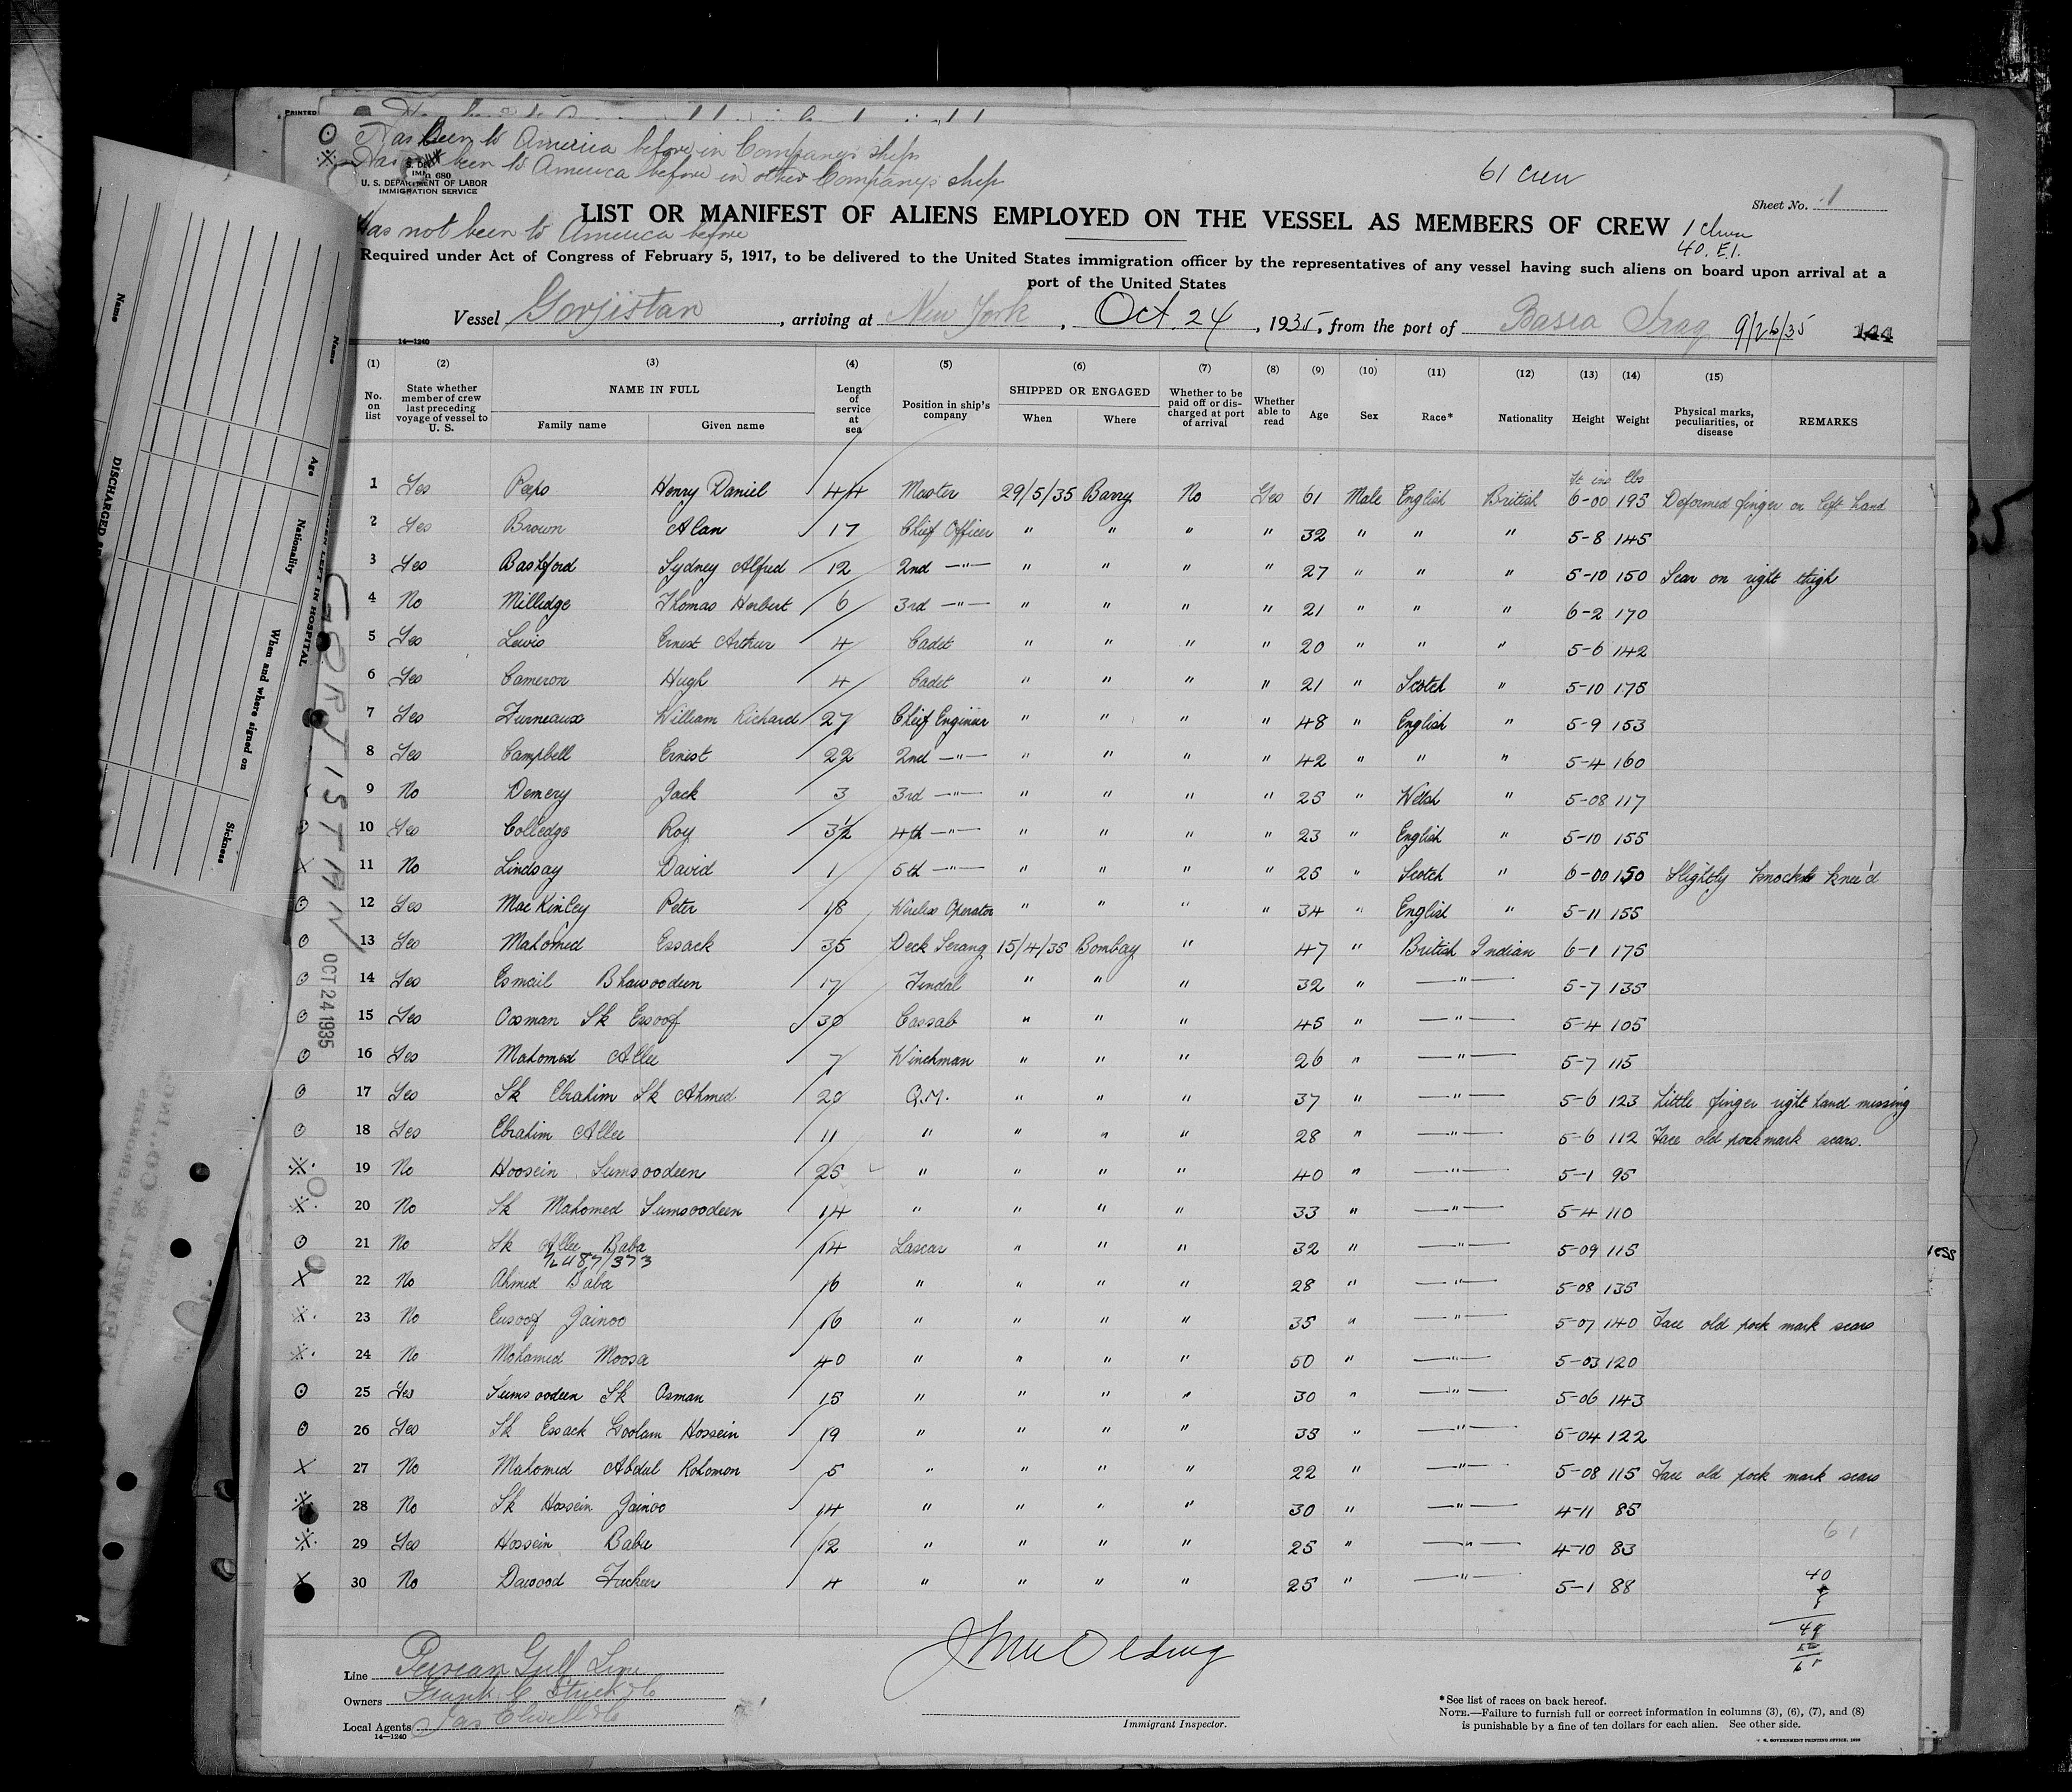 PRINTED
ʘ Has been to America before in Company's ships
※ Has been to America before in other Company's ship
680
U. S. DEPARTMENT OF LABOR
IMMIGRATION SERVICE
61 crew
Sheet No. 1
LIST OR MANIFEST OF ALIENS EMPLOYED ON THE VESSEL AS MEMBERS OF CREW
Has not been to America before
40. E.I.
Required under Act of Congress of February 5, 1917, to be delivered to the United States immigration officer by the representatives of any vessel having such aliens on board upon arrival at a
port of the United States
Vessel Gorjistan, arriving at New York, Oct. 24, 1935, from the port of Basra Iraq 9/26/35 144
14—1240
(1) (2) (3) (4) (5) (6) (7) (8) (9) (10) (11) (12) (13) (14) (15)
No. on list State whether member of crew last preceding voyage of vessel to U. S. NAME IN FULL Family name Given name Length of service at sea Position in ship's company SHIPPED OR ENGAGED When Where Whether to be paid off or discharged at port of arrival Whether able to read Age Sex Race* Nationality Height Weight Physical marks, peculiarities, or disease REMARKS
ft ins lbs
1 Yes Peeps Henry Daniel 44 Master 29/5/35 Barry No Yes 61 Male English British 6-00 195 Deformed finger on left hand
2 Yes Brown Alan 17 Chief Officer " " " " 32 " " " 5-8 145
3 Yes Bashford Sydney Alfred 12 2nd —"— " " " " 27 " " " 5-10 150 Scar on right thigh
4 No Millidge Thomas Herbert 6 3rd —"— " " " " 21 " " " 6-2 170
5 Yes Lewis Ernest Arthur 4 Cadet " " " " 20 " " " 5-6 142
6 Yes Cameron Hugh 4 Cadet " " " " 21 " Scotch " 5-10 175
7 Yes Furneaux William Richard 27 Chief Engineer " " " " 48 " English " 5-9 153
8 Yes Campbell Ernest 22 2nd —"— " " " " 42 " " " 5-4 160
9 No Demery Jack 3 3rd —"— " " " " 25 " Welsh " 5-08 117
ʘ 10 Yes Colledge Roy 3½ 4th —"— " " " " 23 " English " 5-10 155
X 11 No Lindsay David 1 5th —"— " " " " 25 " Scotch " 6-00 150 Slightly knock knee'd
ʘ 12 Yes MacKinley Peter 18 Wireless Operator " " " " 34 " English " 5-11 155
ʘ 13 Yes Mahomed Essack 35 Deck Serang 15/4/35 Bombay " 47 " British Indian 6-1 175
ʘ 14 Yes Esmail Bhawoodeen 17 Tindal " " " 32 " —"— 5-7 135
ʘ 15 Yes Oosman Sk Essoof 30 Cassab " " " 45 " —"— 5-4 105
ʘ 16 Yes Mahomed Allee 7 Winchman " " " 26 " —"— 5-7 115
ʘ 17 Yes Sk Ebrahim Sk Ahmed 20 Q.M. " " " 37 " —"— 5-6 123 Little finger right hand missing
ʘ 18 Yes Ebrahim Allee 11 " " " " 28 " —"— 5-6 112 Face old pockmark scars.
※ 19 No Hoosein Sumsoodeen 25 " " " " 40 " —"— 5-1 95
※ 20 No Sk Mahomed Sumsoodeen 14 " " " " 33 " —"— 5-4 110
ʘ 21 No Sk Allee Baba 14 Lascar " " " 32 " —"— 5-09 115
X 22 No Ahmed Baba 16 " " " " 28 " —"— 5-08 135
※ 23 No Eusoof Jainoo 16 " " " " 35 " —"— 5-07 140 Face old pock mark scars
※ 24 No Mohamed Moosa 40 " " " " 50 " —"— 5-03 120
ʘ 25 Yes Sumsoodeen Sk Osman 15 " " " " 30 " —"— 5-06 143
ʘ 26 Yes Sk Essack Goolam Hossein 19 " " " " 35 " —"— 5-04 122
X 27 No Mahomed Abdul Rohomon 5 " " " " 22 " —"— 5-08 115 Face old pock mark scars
※ 28 No Sk Hossein Jainoo 14 " " " " 30 " —"— 4-11 85
※ 29 Yes Hossein Baba 12 " " " " 25 " —"— 4-10 83
X 30 No Dawood Fucker 4 " " " " 25 " —"— 5-1 88
61
40
Line Persian Gulf Line
Owners Frank C Strick & Co
Local Agents Jas Elwell & Co
14—1240
Immigrant Inspector.
*See list of races on back hereof.
NOTE.—Failure to furnish full or correct information in columns (3), (6), (7), and (8)
is punishable by a fine of ten dollars for each alien. See other side.
U. S. GOVERNMENT PRINTING OFFICE
GORJISTAN
OCT 24 1935
Name
Name
Age
Nationality
When and where signed on
Sickness
LEFT IN HOSPITAL
DISCHARGED